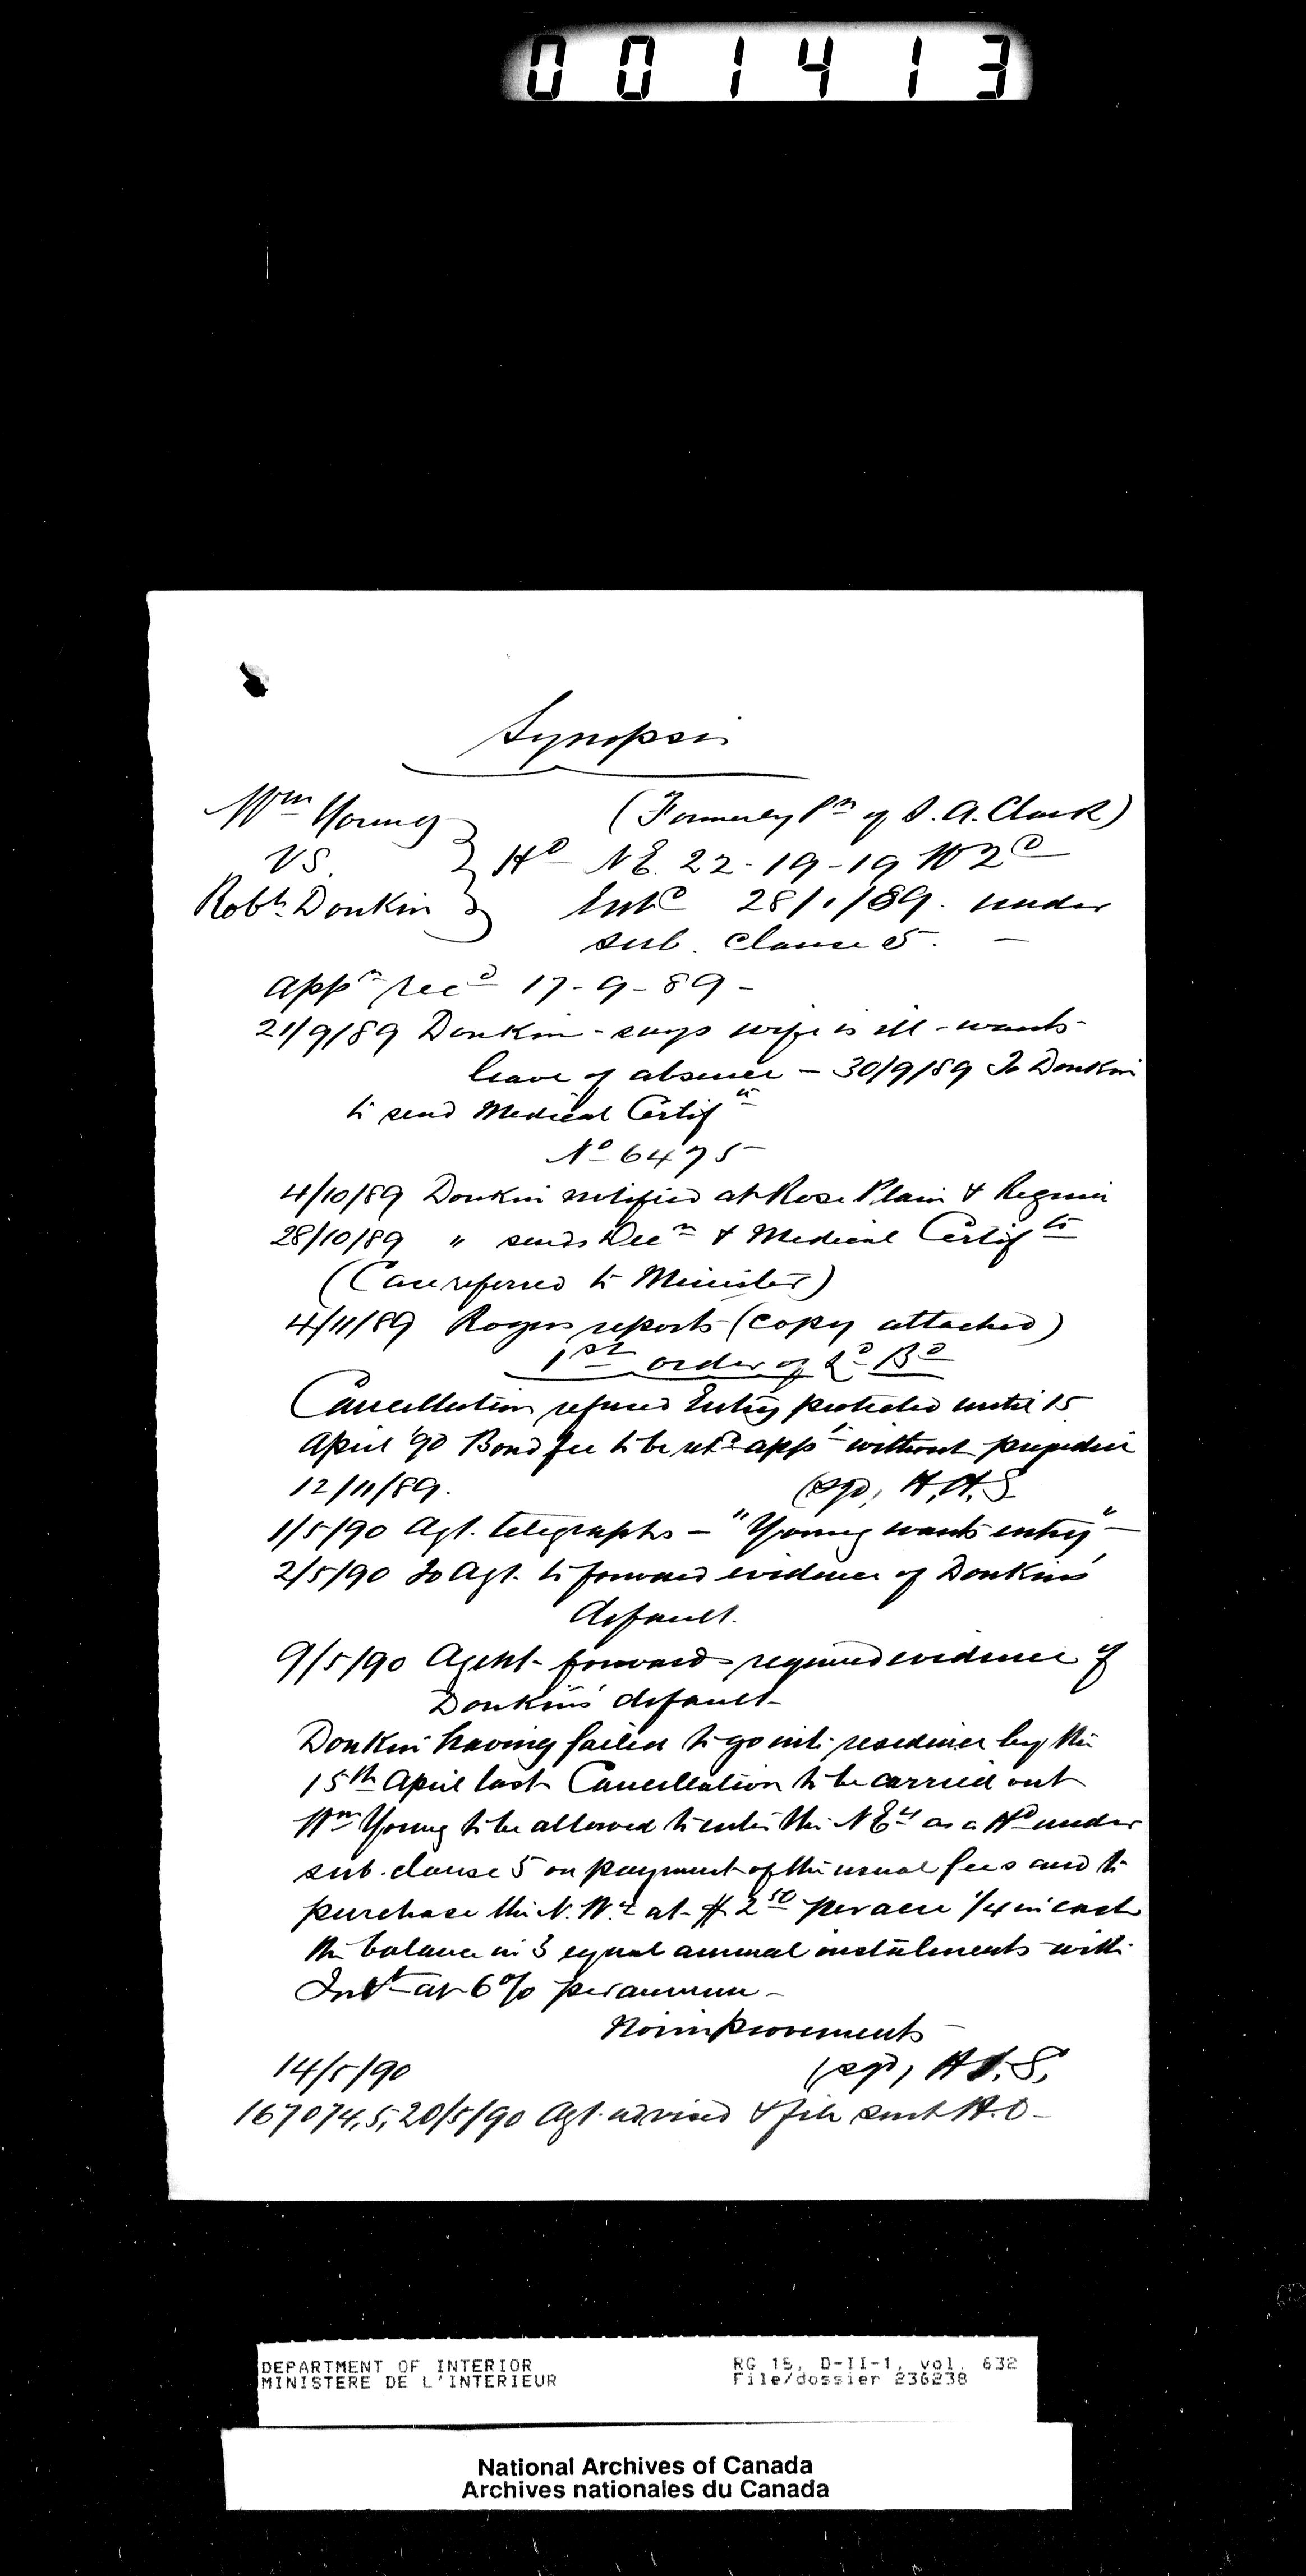 001413
Synopsis
Wm Young (Formerly Pn of S. A. Clark)
VS. } Hd NE. 22-19-19 W2d
Robt Donkin Entd 28/1/89. under
sub. clause 5. —
Appn recd 17-9-89 -
21/9/89 Donkin - says wife is ill - wants
leave of absence - 30/9/89 To Donkin
to send Medical Certif
No 6475
4/10/89 Donkin notified at Rose Plain & Regina
28/10/89 " sends Decn & Medical Certifte
(Case referred to Minister)
4/11/89 Rogers reports (copy attached)
1st order of Ld Bd
Cancellation refused Entry protected until 15
April '90 Bond fee to be retd appt without prejudice
12/11/89. (sgd) H.H.S
1/5/90 Agt. telegraphs - "Young wants entry" -
2/5/90 To Agt. to forward evidence of Donkins'
default.
9/5/90 Agent forwards required evidence of
Donkins' default -
Donkin having failed to go into residence by the
15th April last Cancellation to be carried out
Wm Young to be allowed to enter the NE4 as a Hd under
sub. clause 5 on payment of the usual fees and to
purchase the N.W.4 at $2 50 per acre 1/4 in cash
the balance in 3 equal annual instalments with
Intt at 6% per annum -
No improvements
14/5/90 (sgd) H.H.S.
167074,5, 20/5/90 Agt. advised & file sent H.O -
DEPARTMENT OF INTERIOR RG 15, D-II-1, vol. 632
MINISTERE DE L'INTERIEUR File/dossier 236238
National Archives of Canada
Archives nationales du Canada